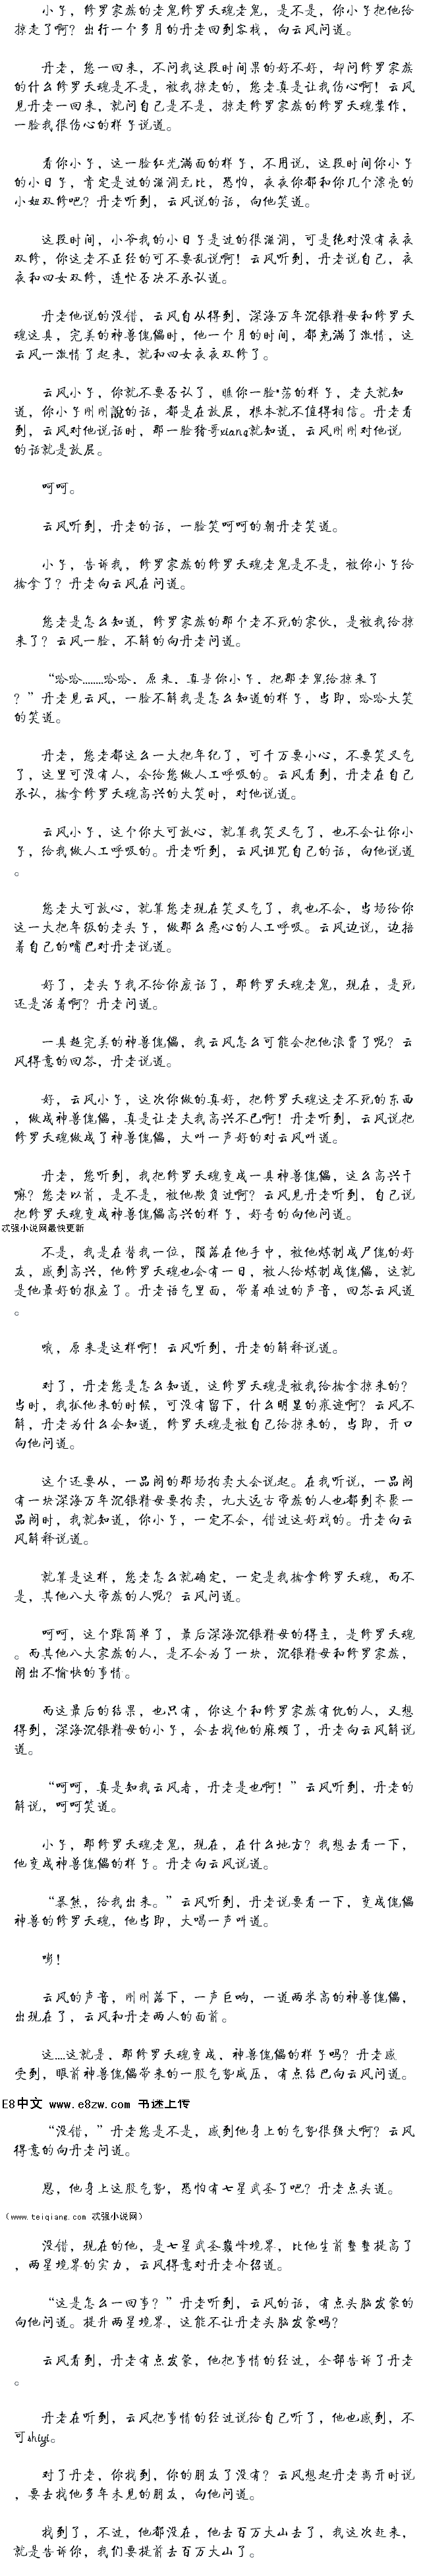 小子，修罗家族的老鬼修罗天魂老鬼，是不是，你小子把他给
掠走了啊？出行一个多月的丹老回到客栈，向云风问道。
丹老，您一回来，不问我这段时间果的好不好，却问修罗家族
的什么修罗天魂是不是，被我掠走的，您老真是让我伤心啊！云风
见丹老一回来，就问自己是不是，掠走修罗家族的修罗天魂某作，
一脸我很伤心的样子说道。
看你小子，这一脸红光满面的样子，不用说，这段时间你小子
的小日子，肯定是过的滋润无比，恐怕，夜夜你都和你几个漂亮的
小妞双修吧？丹老听到，云风说的话，向他笑道。
这段时间，小爷我的小日子是过的很滋润，可是绝对没有夜夜
双修，你这老不正经的可不要乱说啊！云风听到，丹老说自己，夜
夜和四女双修，连忙否决不承认道。
丹老他说的没错，云风自从得到，深海万年沉银精母和修罗天
魂这具，完美的神兽傀儡时，他一个月的时间，都充满了激情，这
云风一激情了起来，就和四女夜夜双修了。
云风小子，你就不要否认了，瞧你一脸*荡的样子，老夫就知
道，你小子刚刚說的话，都是在放屁，根本就不值得相信。丹老看
到，云风对他说话时，那一脸猪哥xiang就知道，云风刚刚对他说
的话就是放屁。
呵呵。
云风听到，丹老的话，一脸笑呵呵的朝丹老笑道。
小子，告诉我，修罗家族的修罗天魂老鬼是不是，被你小子给
擒拿了？丹老向云风在问道。
您老是怎么知道，修罗家族的那个老不死的家伙，是被我给掠
来了？云风一脸，不解的向丹老问道。
“哈哈........哈哈、原来、真是你小子、把那老鬼给掠来了
？”丹老见云风，一脸不解我是怎么知道的样子，当即，哈哈大笑
的笑道。
丹老，您老都这么一大把年纪了，可千万要小心，不要笑叉气了
了，这里可没有人，会给您做人工呼吸的。云风看到，丹老在自己
承认，擒拿修罗天魂高兴的大笑时，对他说道。
云风小子，这个你大可放心，就算我笑叉气了，也不会让你小
子，给我做人工呼吸的。丹老听到，云风诅咒自己的话，向他说道
。
您老大可放心，就算您老现在笑叉气了，我也不会，当场给你
这一大把年级的老头子，做那么恶心的人工呼吸。云风边说，边捂
着自己的嘴巴对丹老说道。
好了，老头子我不给你废话了，那修罗天魂老鬼，现在，是死
还是活着啊？丹老问道。
一具超完美的神兽傀儡，我云风怎么可能会把他浪费了呢？云
风得意的回答，丹老说道。
好，云风小子，这次你做的真好，把修罗天魂这老不死的东西
，做成神兽傀儡，真是让老夫我高兴不已啊！丹老听到，云风说把
修罗天魂做成了神兽傀儡，大叫一声好的对云风叫道。
丹老，您听到，我把修罗天魂变成一具神兽傀儡，这么高兴干
嘛？您老以前，是不是，被他欺负过啊？云风见丹老听到，自己说
把修罗天魂变成神兽傀儡高兴的样子，好奇的向他问道。
忒强小说网最快更新
不是，我是在替我一位，陨落在他手中，被他炼制成尸傀的好
友，感到高兴，他修罗天魂也会有一日，被人给炼制成傀儡，这就
是他最好的报应了。丹老语气里面，带着难过的声音，回答云风道
。
哦，原来是这样啊！云风听到，丹老的解释说道。
对了，丹老您是怎么知道，这修罗天魂是被我给擒拿掠来的？
当时，我抓他来的时候，可没有留下，什么明显的痕迹啊？云风不
解，丹老为什么会知道，修罗天魂是被自己给掠来的，当即，开口
向他问道。
这个还要从，一品阁的那场拍卖大会说起。在我听说，一品阁
有一块深海万年沉银精母要拍卖，九大远古帝族的人也都到齐聚一
品阁时，我就知道，你小子，一定不会，错过这好戏的。丹老向云
风解释说道。
就算是这样，您老怎么就确定，一定是我擒拿修罗天魂，而不
是，其他八大帝族的人呢？云风问道。
呵呵，这个跟简单了，最后深海沉银精母的得主，是修罗天魂
。而其他八大家族的人，是不会为了一块，沉银精母和修罗家族，
闹出不愉快的事情。
而这最后的结果，也只有，你这个和修罗家族有仇的人，又想
得到，深海沉银精母的小子，会去找他的麻烦了，丹老向云风解说
道。
“呵呵，真是知我云风者，丹老是也啊！”云风听到，丹老的
解说，呵呵笑道。
小子，那修罗天魂老鬼，现在，在什么地方？我想去看一下，
他变成神兽傀儡的样子。丹老向云风说道。
“暴熊，给我出来。”云风听到，丹老说要看一下，变成傀儡
神兽的修罗天魂，他当即，大喝一声叫道。
嘭！
云风的声音，刚刚落下，一声巨响，一道两米高的神兽傀儡，
出现在了，云风和丹老两人的面前。
这....这就是、那修罗天魂变成、神兽傀儡的样子吗？丹老感
受到，眼前神兽傀儡带来的一股气势威压，有点结巴向云风问道。
E8中文 www.e8zw.com 书迷上传
“没错，”丹老您是不是，感到他身上的气势很强大啊？云风
得意的向丹老问道。
恩，他身上这股气势，恐怕有七星武圣了吧？丹老点头道。
（www.teiqiang.com 忒强小说网）
没错，现在的他，是七星武圣巅峰境界，比他生前整整提高了
，两星境界的实力，云风得意对丹老介绍道。
“这是怎么一回事？”丹老听到，云风的话，有点头脑发蒙的
向他问道。提升两星境界，这能不让丹老头脑发蒙吗？
云风看到，丹老有点发蒙，他把事情的经过，全部告诉了丹老
。
丹老在听到，云风把事情的经过说给自己听了，他也感到，不
可shiyi。
对了丹老，你找到，你的朋友了没有？云风想起丹老离开时说
，要去找他多年未见的朋友，向他问道。
找到了，不过，他都没在，他去百万大山去了，我这次赶来，
就是告诉你，我们要提前去百万大山了。